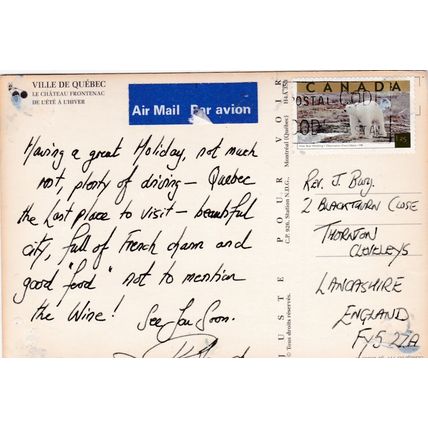 VILLE DE QUÉBEC
LE CHÂTEAU FRONTENAC
DE L'ÉTÉ À L'HIVER
Air Mail Par avion
CANADA
POSTAL CODE
Having a great Holiday, not much
rest, plenty of driving – Quebec
the Last place to visit – beautiful
city, full of French charm and
good "food" not to mention
the Wine!
See You Soon.
POUR VOIR
Montréal (Québec)
C.P. 928, Station N.D.G.,
© Tous droits réservés.
Rev. J. Bury.
2 BLACKTHORN CLOSE
THORNTON
CLEVELEYS
LANCASHIRE
ENGLAND
FY5 2ZA